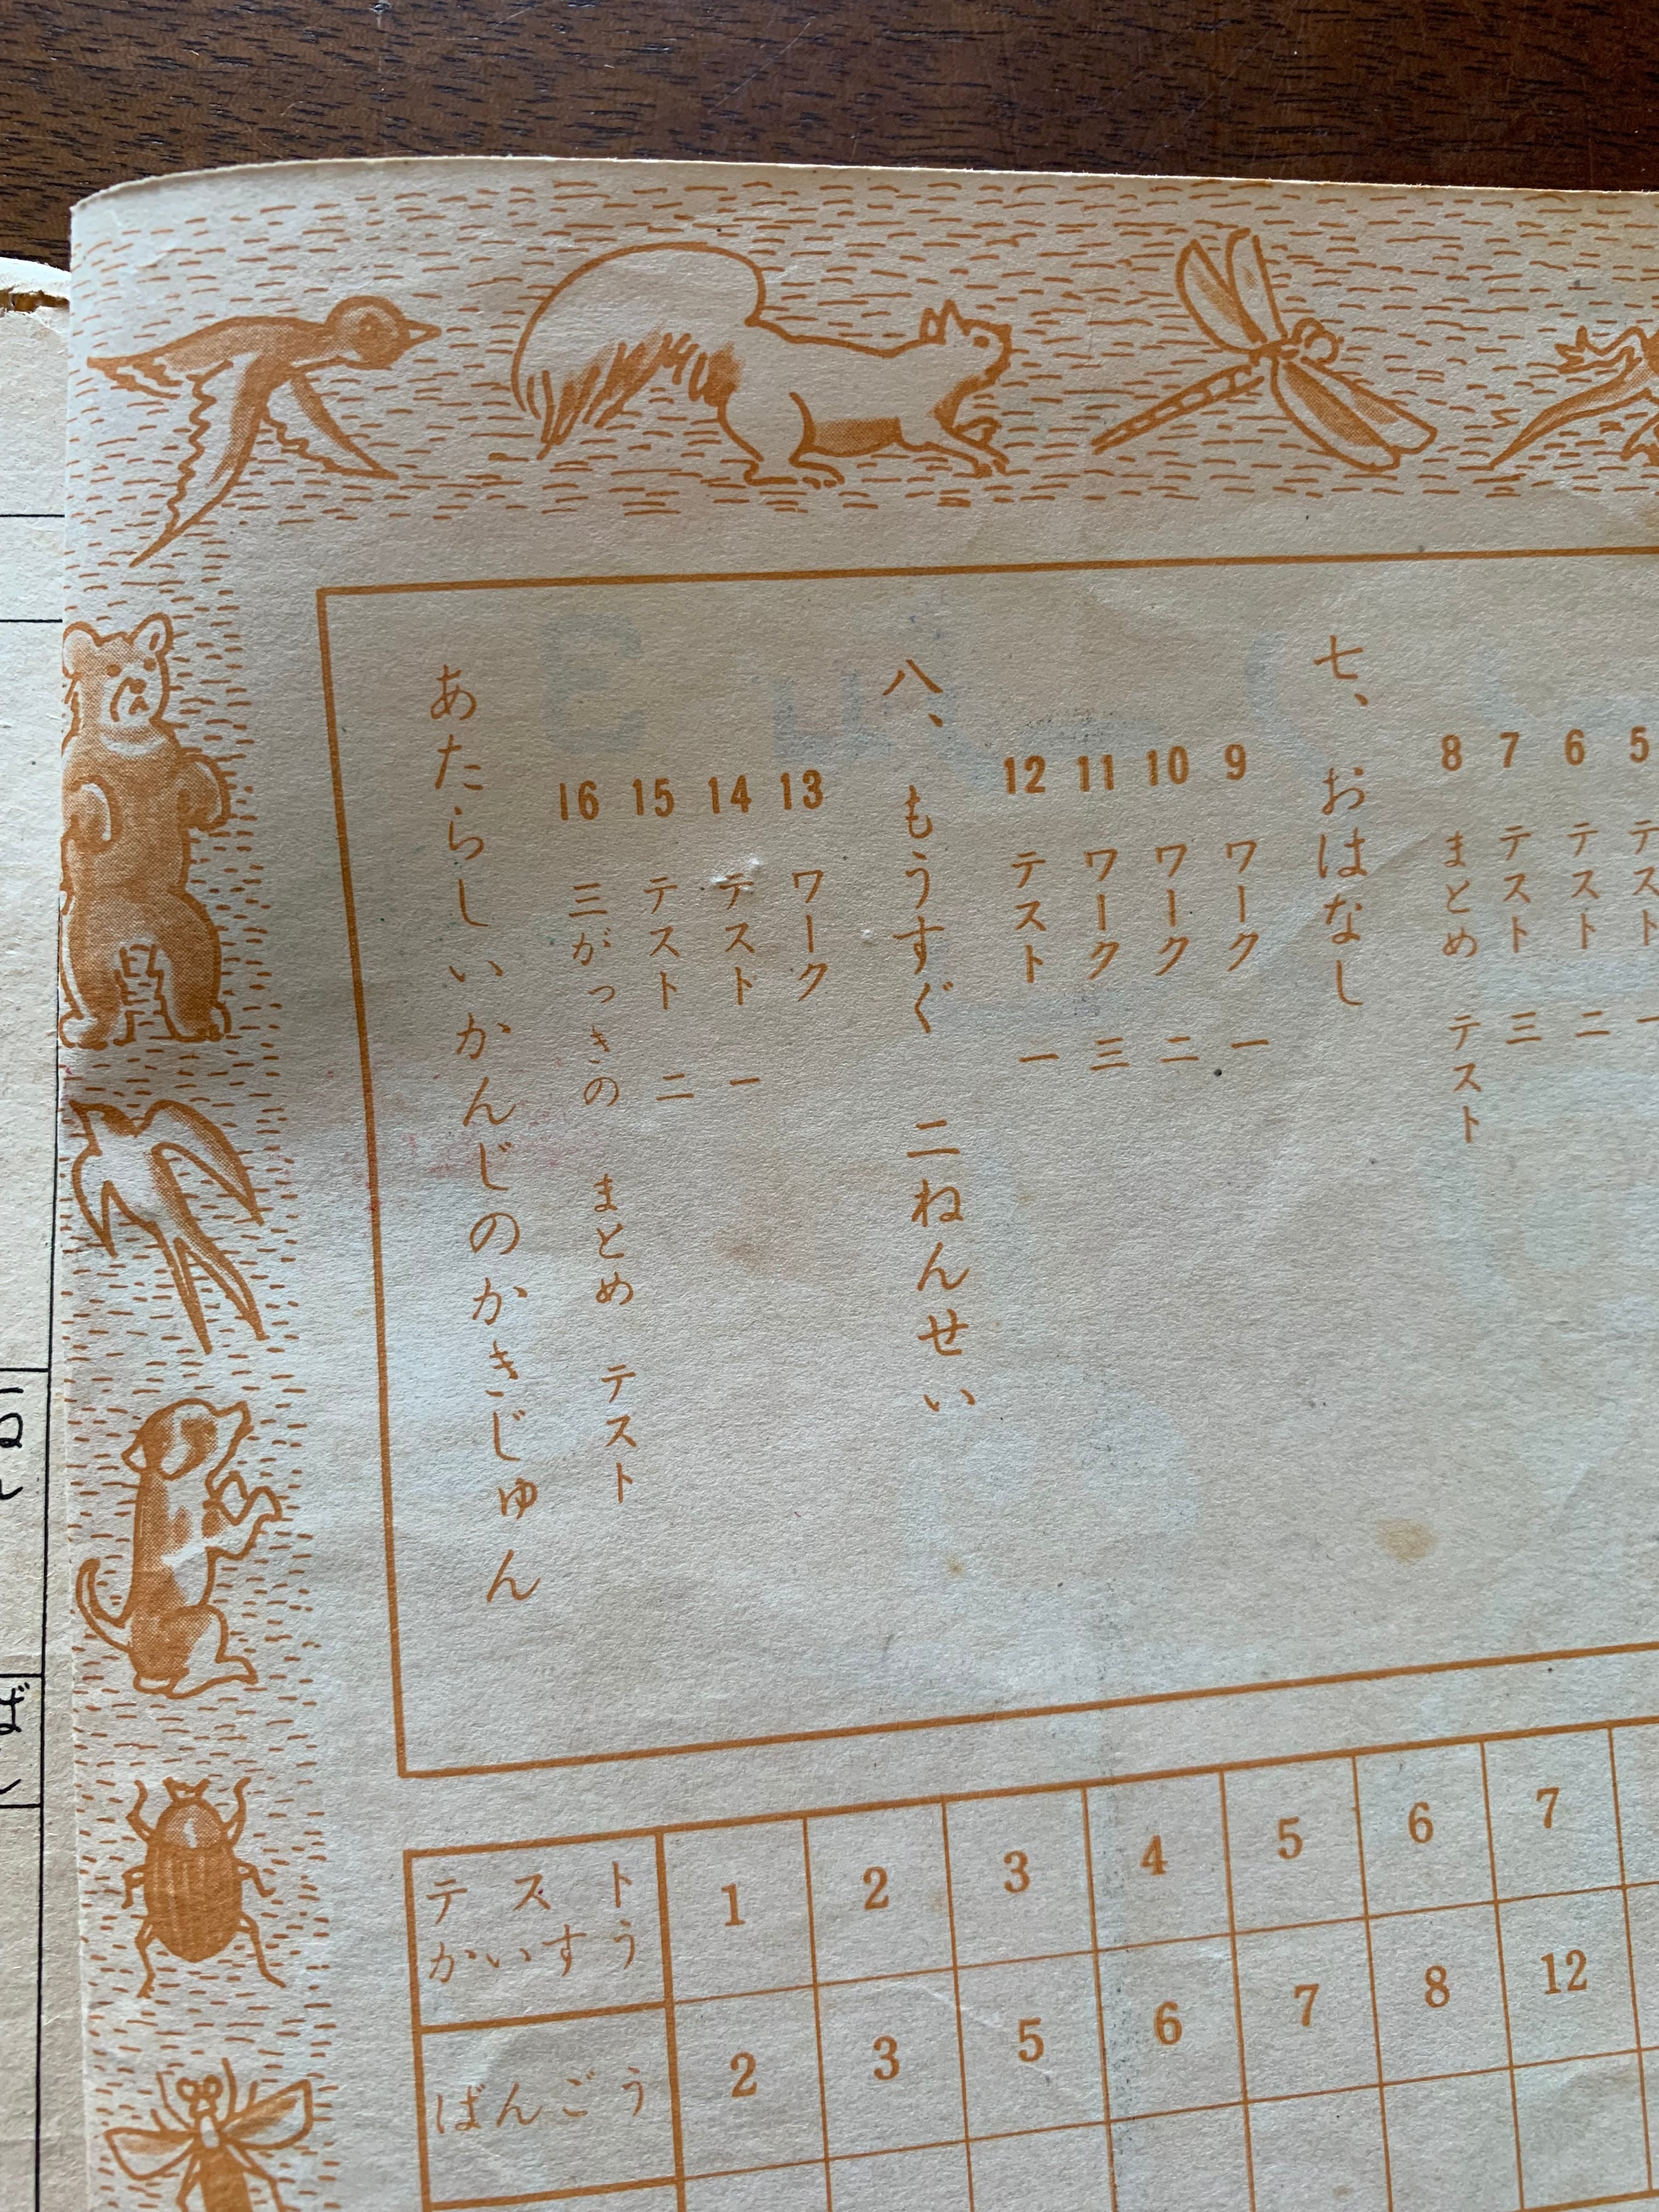 5 テスト 一
6 テスト 二
7 テスト 三
8 まとめ テスト
七、 おはなし
9 ワーク 一
10 ワーク 二
11 ワーク 三
12 テスト 一
八、 もうすぐ 二ねんせい
13 ワーク
14 テスト 一
15 テスト 二
16 三がっきの まとめ テスト
あたらしいかんじのかきじゅん
テスト かいすう 1 2 3 4 5 6 7
ばんごう 2 3 5 6 7 8 12